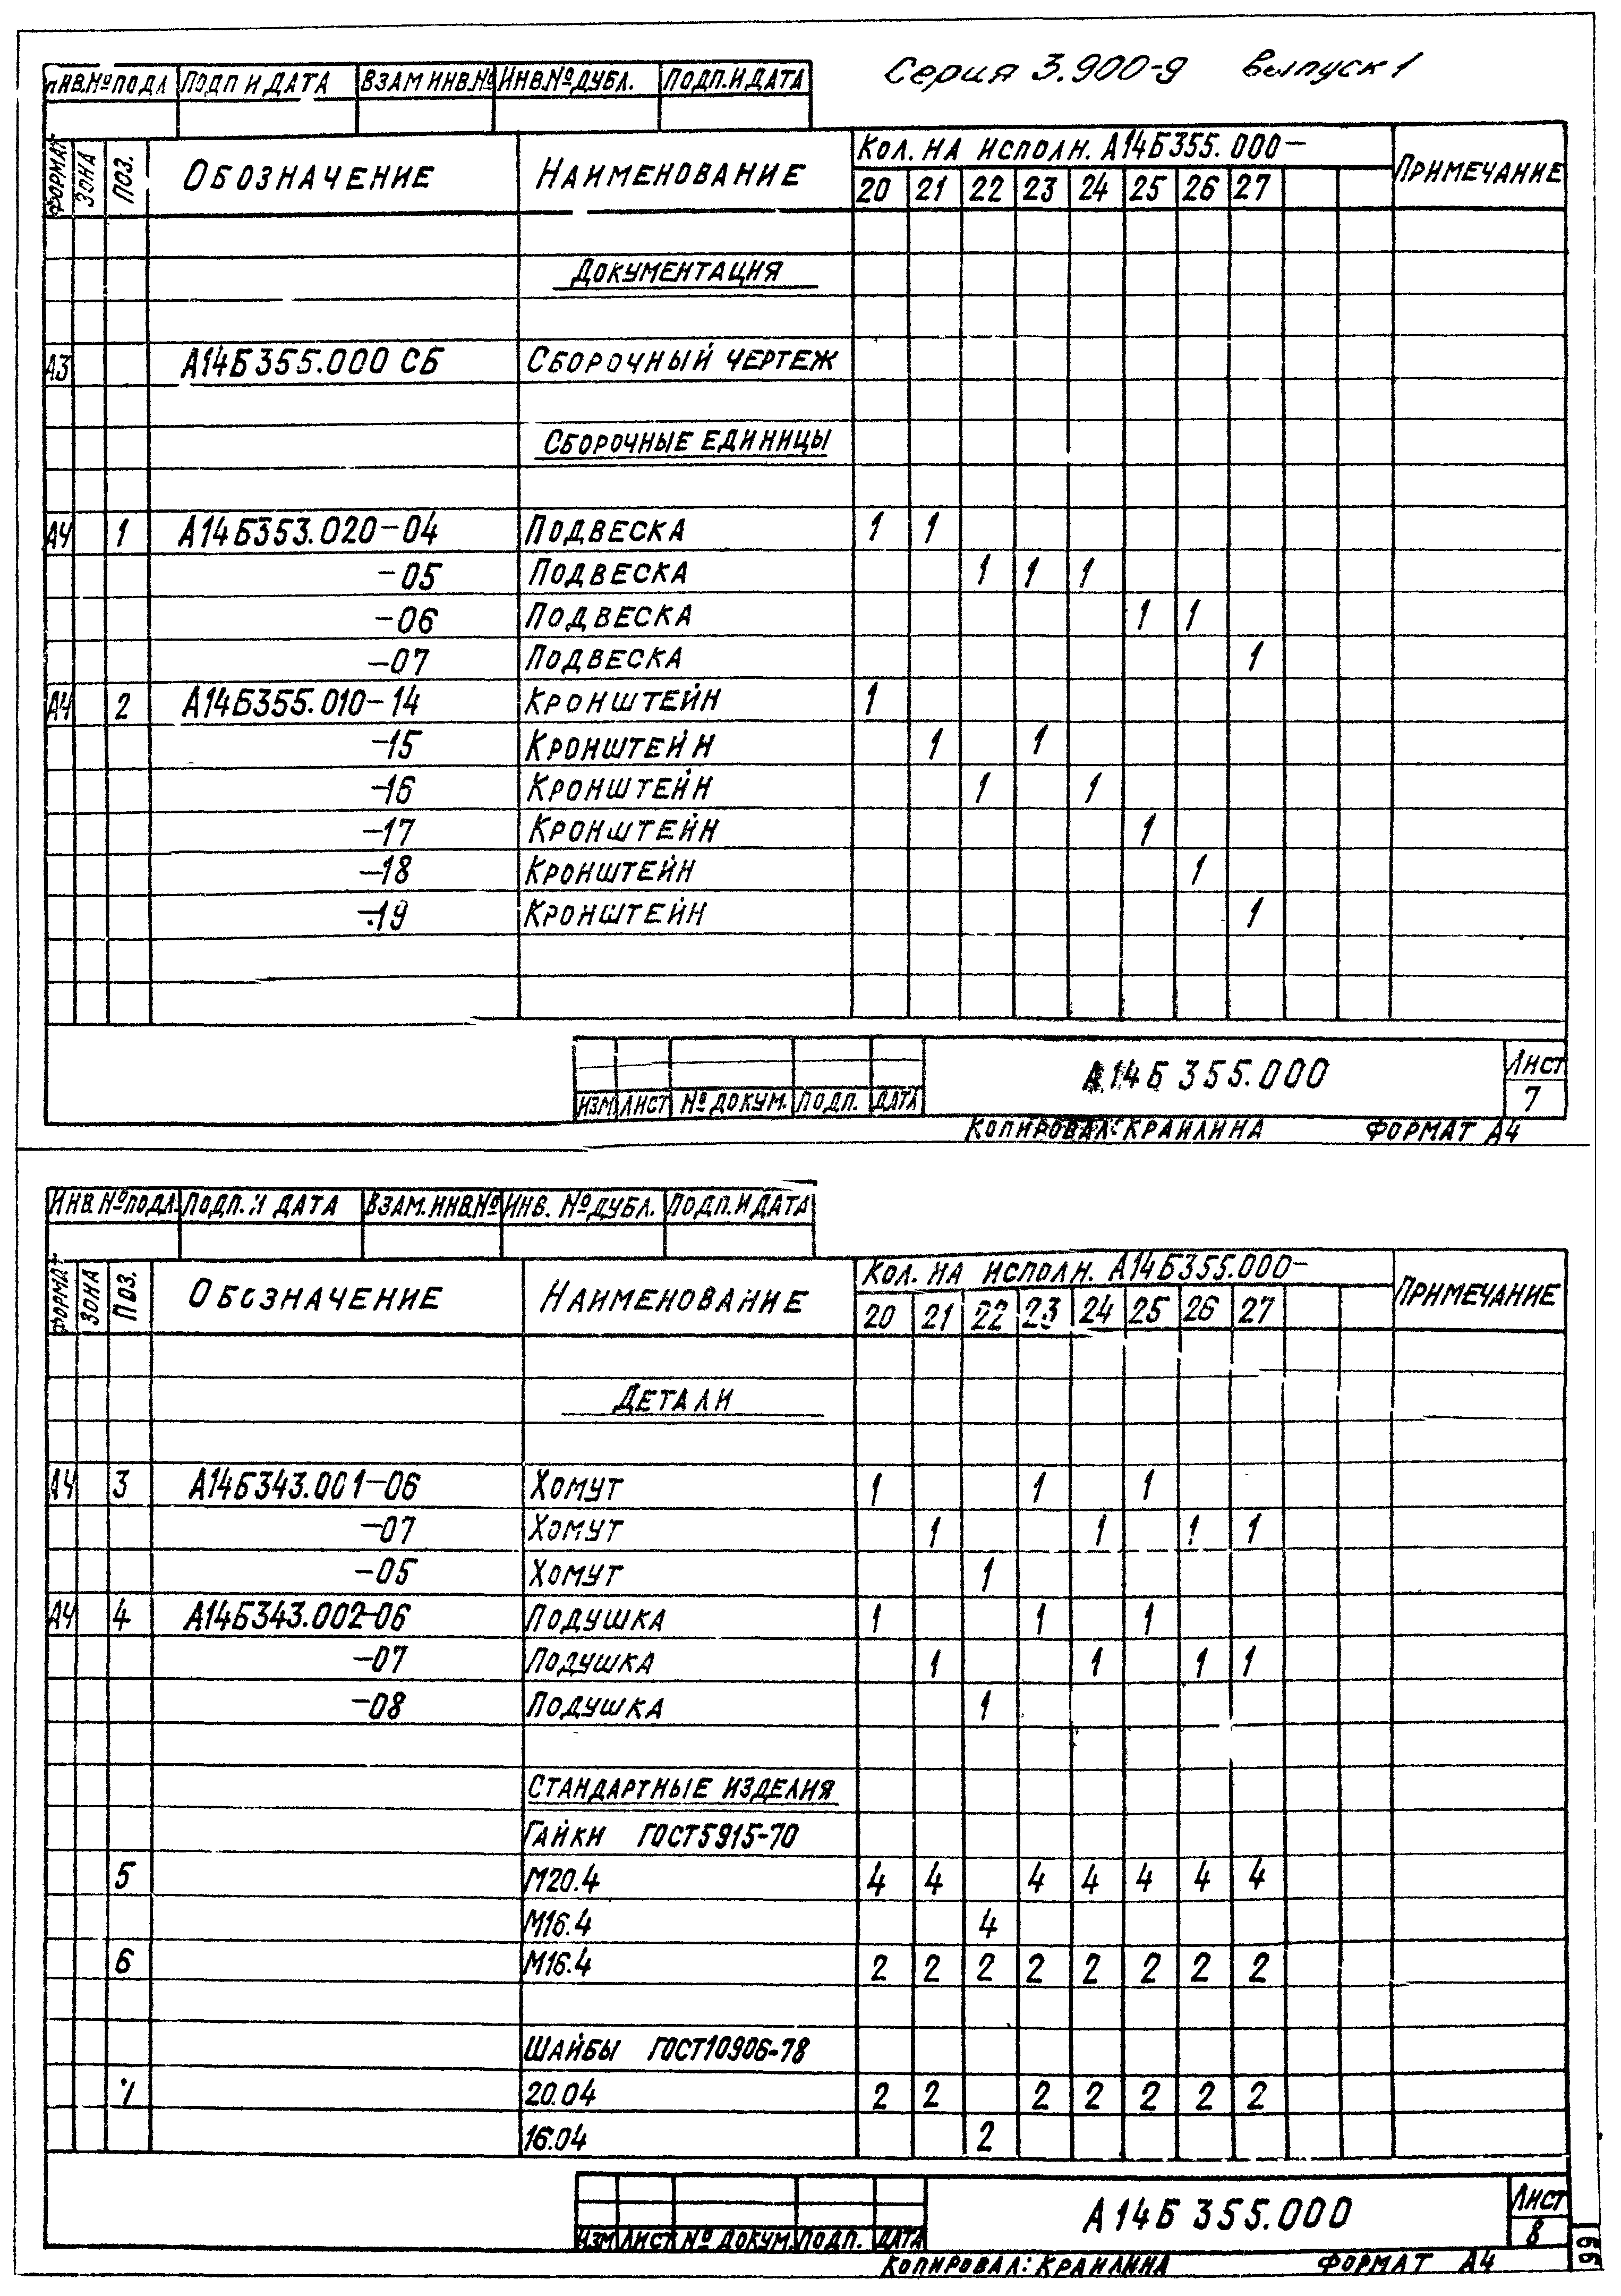 Серия 3.900-9 выпуск 1
ИНВ.№ПОДЛ ПОДП И ДАТА ВЗАМ ИНВ.№ ИНВ.№ДУБЛ. ПОДП.И ДАТА
ФОРМАТ ЗОНА ПОЗ. ОБОЗНАЧЕНИЕ НАИМЕНОВАНИЕ КОЛ. НА ИСПОЛН. А14Б355.000– ПРИМЕЧАНИЕ
20 21 22 23 24 25 26 27
ДОКУМЕНТАЦИЯ
А3 А14Б355.000 СБ СБОРОЧНЫЙ ЧЕРТЕЖ
СБОРОЧНЫЕ ЕДИНИЦЫ
А4 1 А14Б353.020–04 ПОДВЕСКА 1 1
–05 ПОДВЕСКА 1 1 1
–06 ПОДВЕСКА 1 1
–07 ПОДВЕСКА 1
А4 2 А14Б355.010–14 КРОНШТЕЙН 1
–15 КРОНШТЕЙН 1 1
–16 КРОНШТЕЙН 1 1
–17 КРОНШТЕЙН 1
–18 КРОНШТЕЙН 1
–19 КРОНШТЕЙН 1
А14Б 355.000
ЛИСТ
7
ИЗМ ЛИСТ № ДОКУМ. ПОДП. ДАТА
КОПИРОВАЛ: КРАИЛИНА ФОРМАТ А4
ИНВ.№ПОДЛ. ПОДП. И ДАТА ВЗАМ.ИНВ.№ ИНВ. №ДУБЛ. ПОДП.И ДАТА
ФОРМАТ ЗОНА ПОЗ. ОБОЗНАЧЕНИЕ НАИМЕНОВАНИЕ КОЛ. НА ИСПОЛН. А14Б355.000– ПРИМЕЧАНИЕ
20 21 22 23 24 25 26 27
ДЕТАЛИ
А4 3 А14Б343.001–06 ХОМУТ 1 1 1
–07 ХОМУТ 1 1 1 1
–05 ХОМУТ 1
А4 4 А14Б343.002–06 ПОДУШКА 1 1 1
–07 ПОДУШКА 1 1 1 1
–08 ПОДУШКА 1
СТАНДАРТНЫЕ ИЗДЕЛИЯ
ГАЙКИ ГОСТ5915-70
5 М20.4 4 4 4 4 4 4 4
М16.4 4
6 М16.4 2 2 2 2 2 2 2 2
ШАЙБЫ ГОСТ10906-78
7 20.04 2 2 2 2 2 2 2
16.04 2
А14Б 355.000
ЛИСТ
8
ИЗМ ЛИСТ № ДОКУМ. ПОДП. ДАТА
КОПИРОВАЛ: КРАИЛИНА ФОРМАТ А4